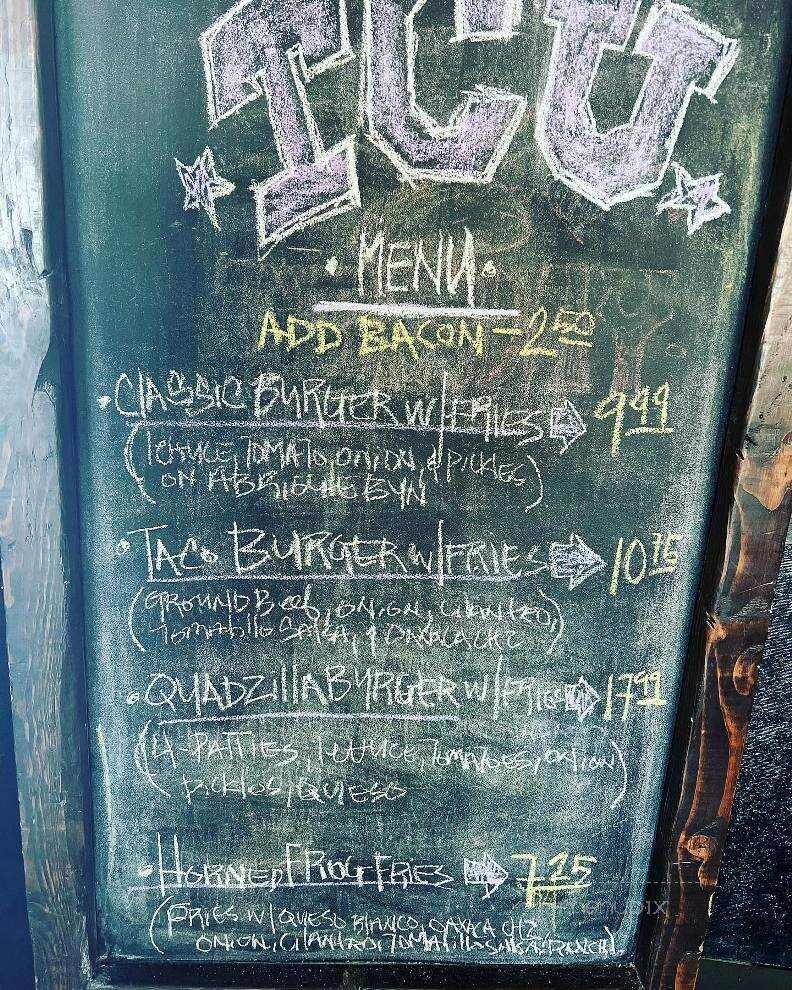 TCU
• MENU •
ADD BACON - 2 50
• CLASSIC BURGER W/FRIES 9 99
(LETTUCE, TOMATO, ONION, & PICKLES)
ON A BRIOCHE BUN
• TACO BURGER W/FRIES 10 75
(GROUND BEEF, ONION, CILANTRO,
TOMATILLO SALSA, & OAXACA CHZ)
• QUADZILLA BURGER W/FRIES 17 99
(4-PATTIES, LETTUCE, TOMATOES, ONION
PICKLES, QUIESO)
• HORNED FROG FRIES 7 25
(FRIES W/ QUIESO BLANCO, OAXACA CHZ,
ONION, CILANTRO, TOMATILLO SALSA, RANCH)
menupix